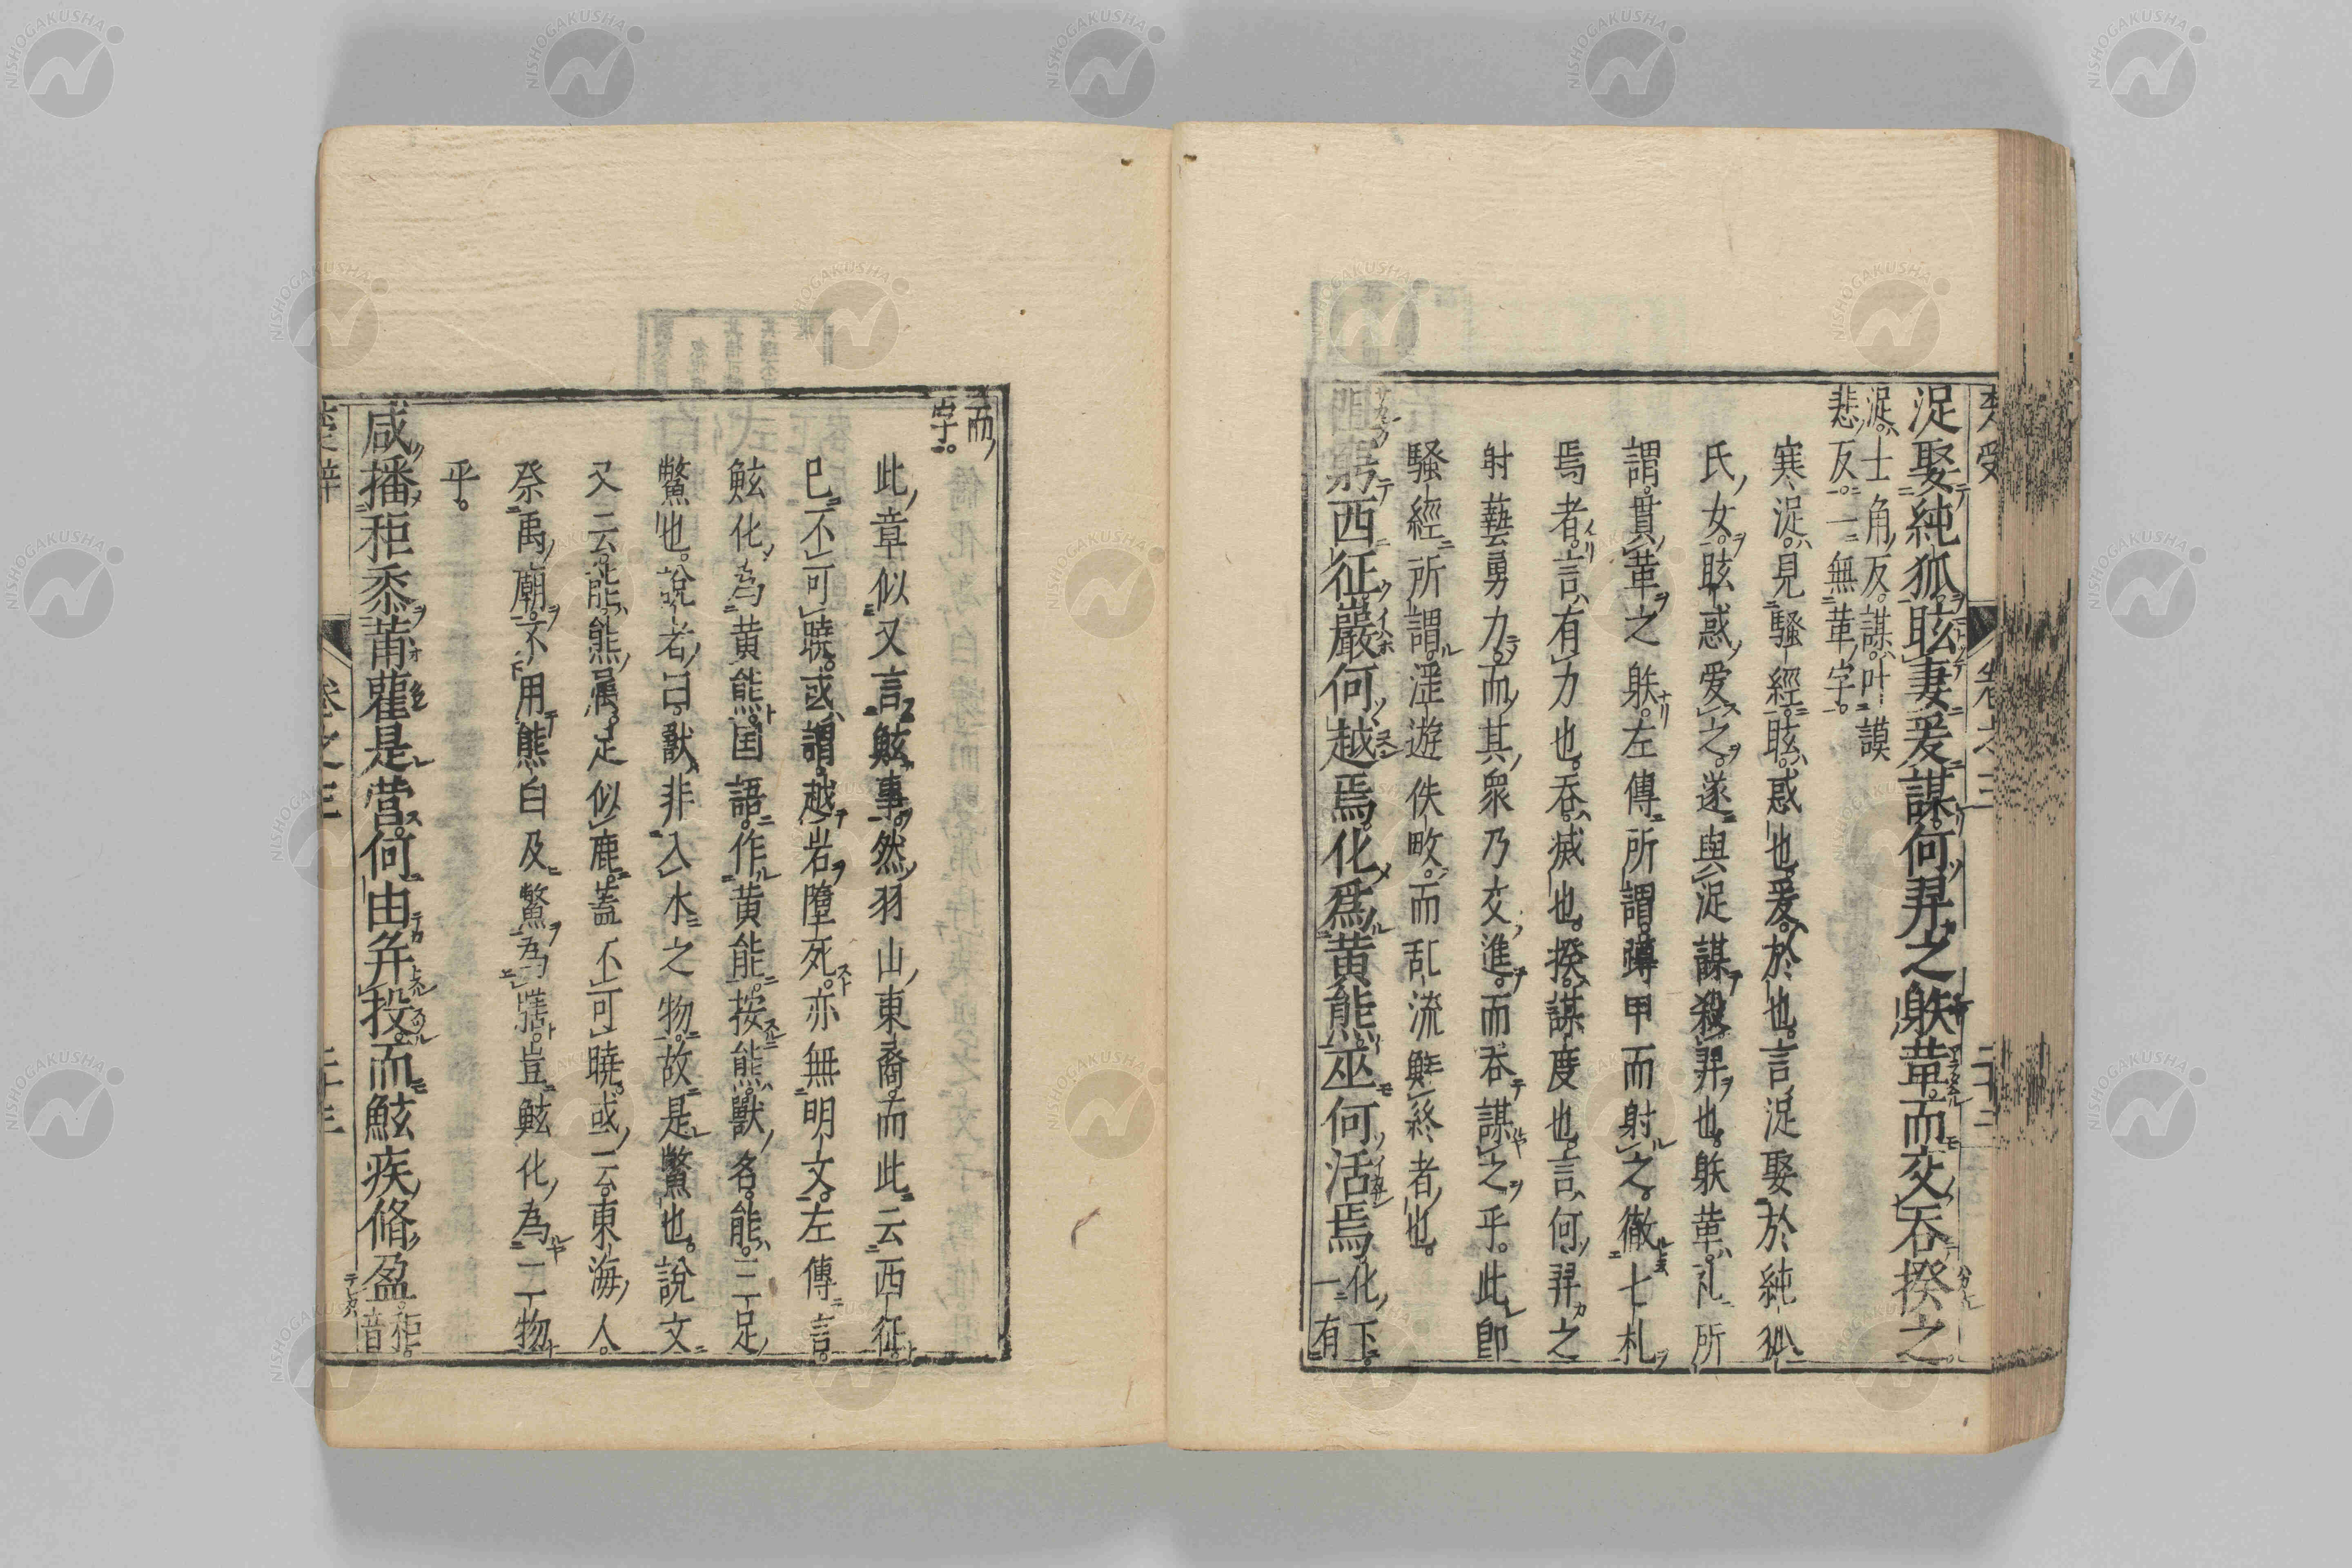 浞娶純狐眩妻爰謀何羿之䠶革而交吞揆之
浞士角反謀叶謨
悲反一無革字
寒浞見騷經眩惑也爰於也言浞娶於純狐
氏女眩惑愛之遂與浞謀殺羿也䠶革礼所
謂貫革之䠶左傳所謂蹲甲而射之徹七札
焉者言有力也吞滅也揆謀度也言何羿之
射藝勇力而其衆乃交進而吞謀之乎此卽
騷經所謂淫遊佚畋而乱流鮮終者也
阻窮西征巖何越焉化爲黃熊巫何活焉
化下
一有
而
字
此章似又言鮌事然羽山東裔而此云西征
已不可曉或謂越岩墮死亦無明文左傳言
鮌化為黃熊国語作黃能按熊獸名能三足
鱉也說者曰獸非入水之物故是鱉也說文
又云能熊屬足似鹿蓋不可曉或云東海人
祭禹廟不用熊白及鱉為膳豈鮌化為二物
乎
咸播秬黍莆雚是營何由并投而鮌疾脩盈
秬
音
楚辭
卷之三
二十三
NISHOGAKUSHA